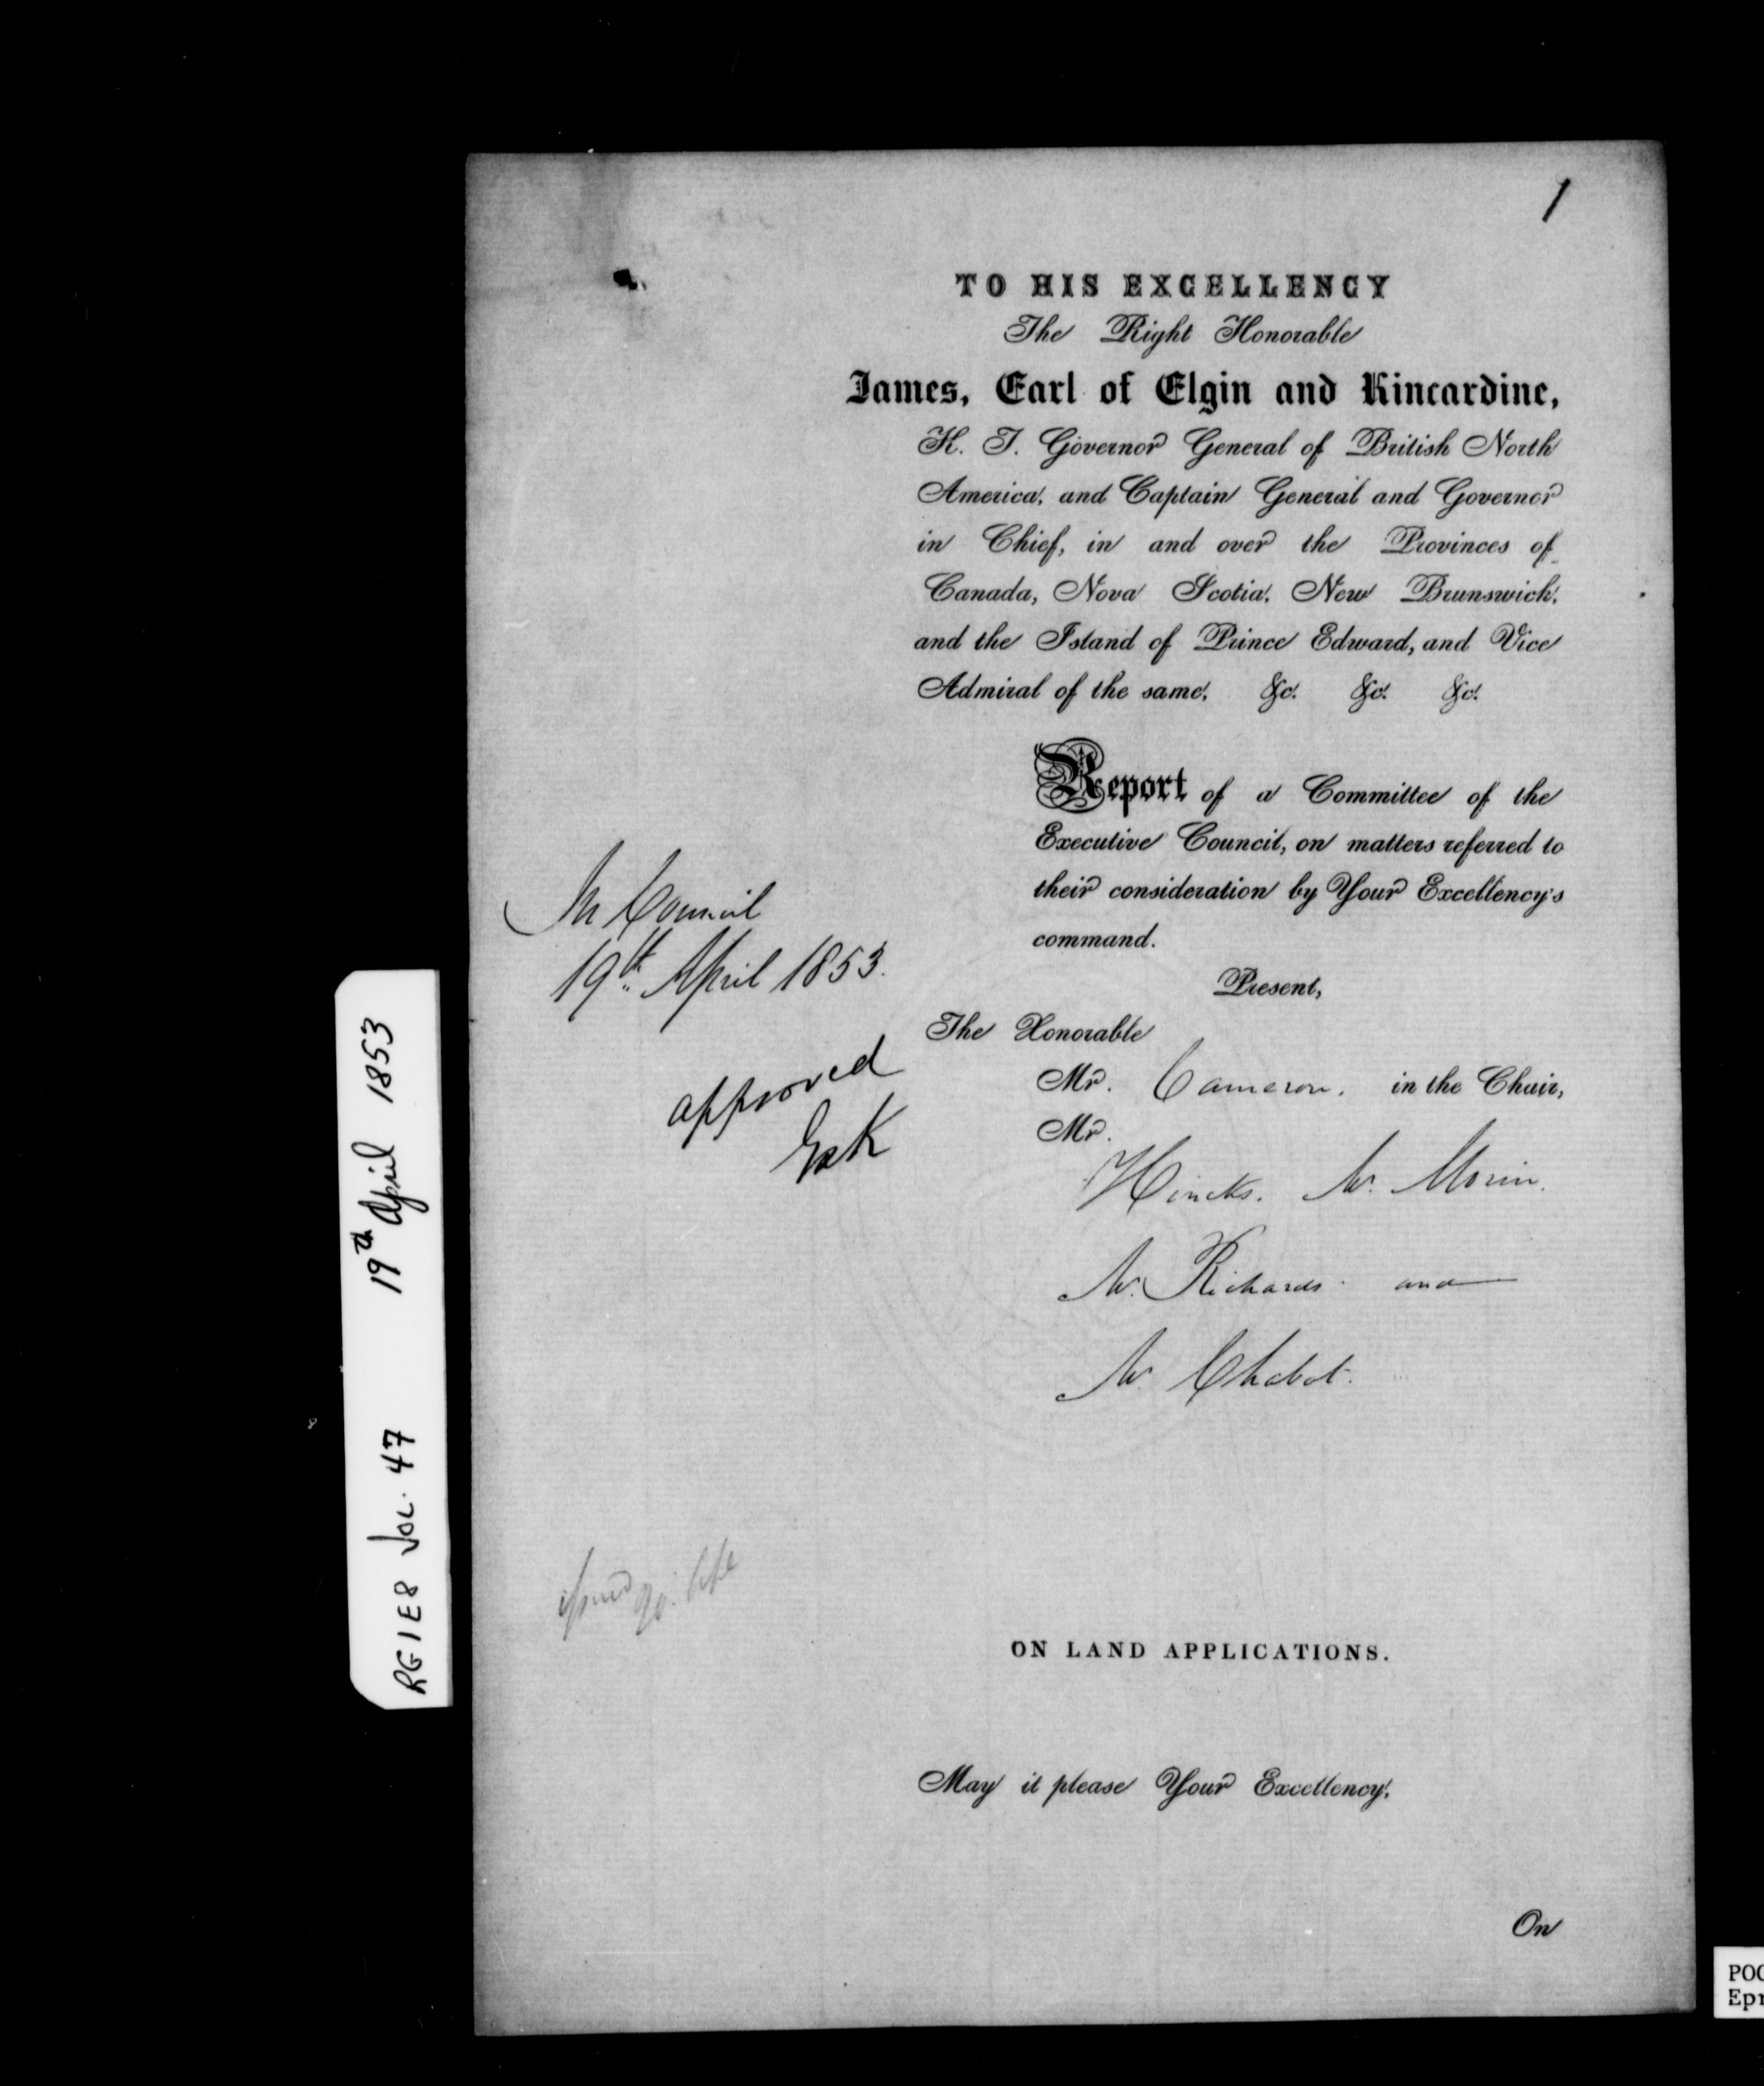 1
TO HIS EXCELLENCY
The Right Honorable
James, Earl of Elgin and Kincardine,
K. T. Governor General of British North
America, and Captain General and Governor
in Chief, in and over the Provinces of
Canada, Nova Scotia, New Brunswick,
and the Island of Prince Edward, and Vice
Admiral of the same, &c. &c. &c.
Report of a Committee of the
Executive Council, on matters referred to
their consideration by Your Excellency's
command.
In Council
19th April 1853.
approved
E&K
Present,
The Honorable
Mr. Cameron. in the Chair,
Mr.
Hincks. Mr. Morin.
Mr. Richards and
Mr. Chabot.
ON LAND APPLICATIONS.
May it please Your Excellency,
On
RG1E8 VOL. 47 19th April 1853
POC
Epr